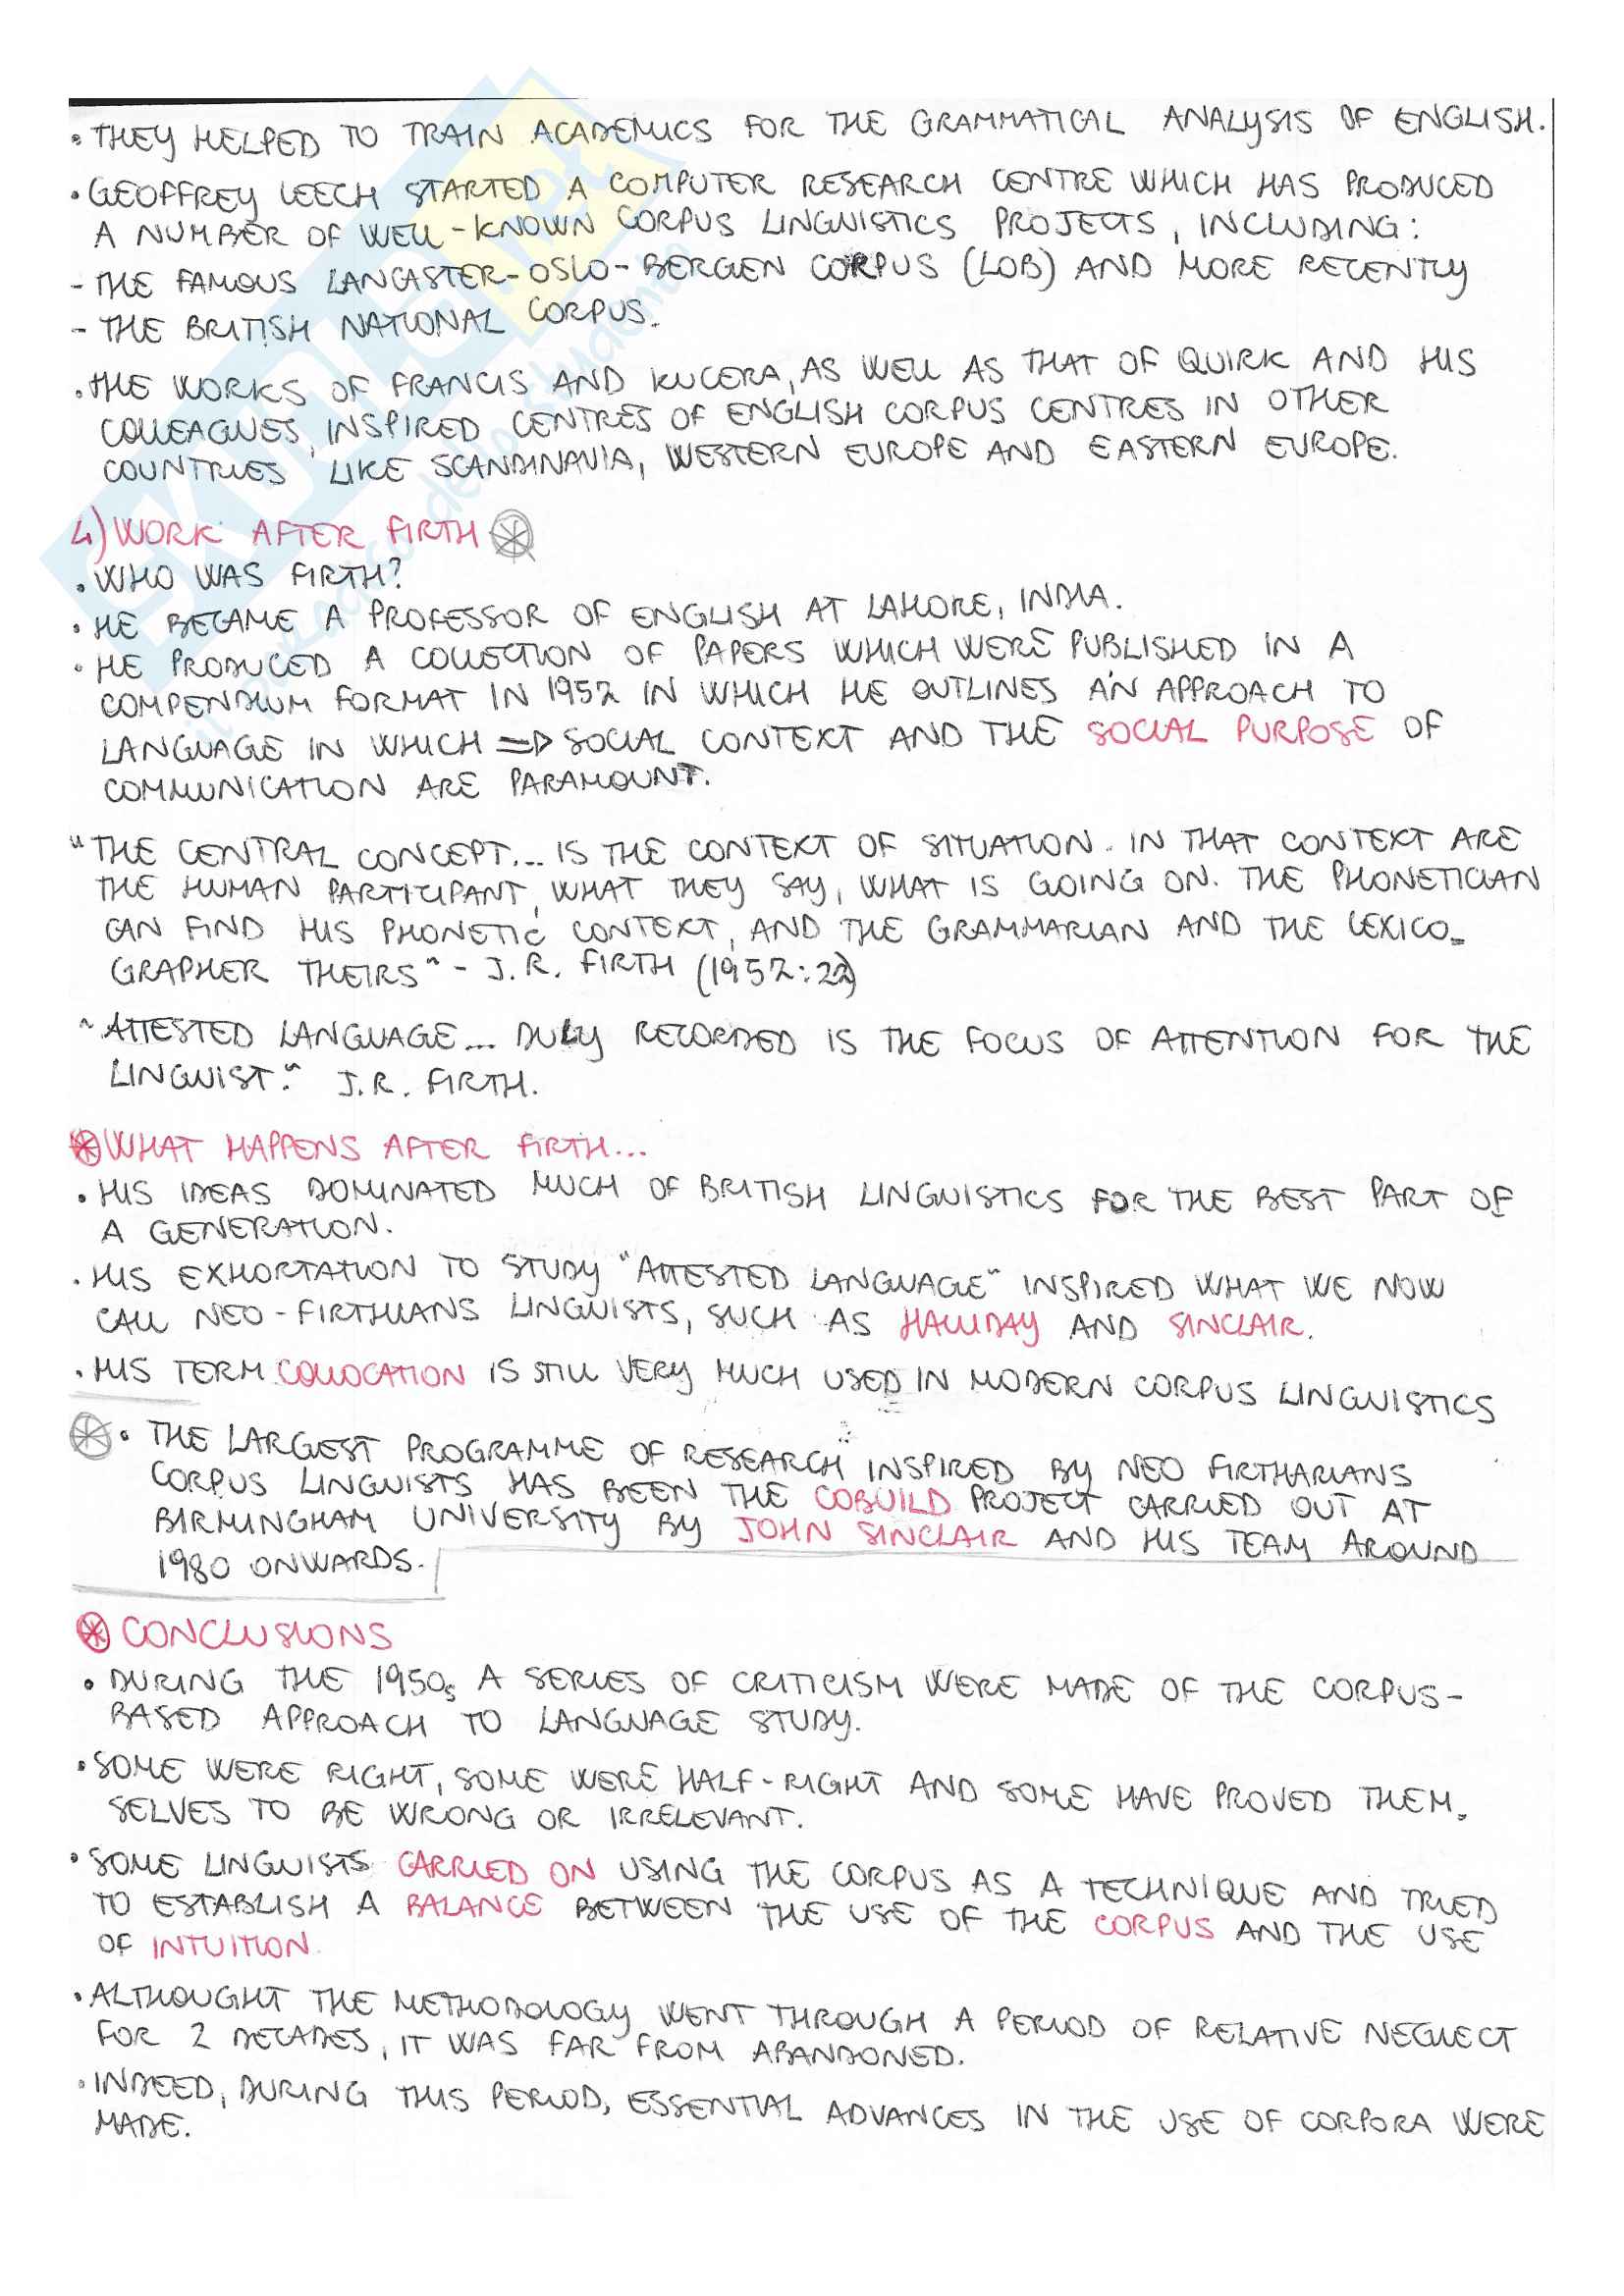 • THEY HELPED TO TRAIN ACADEMICS FOR THE GRAMMATICAL ANALYSIS OF ENGLISH.
• GEOFFREY LEECH STARTED A COMPUTER RESEARCH CENTRE WHICH HAS PRODUCED
A NUMBER OF WELL-KNOWN CORPUS LINGUISTICS PROJECTS, INCLUDING:
- THE FAMOUS LANCASTER-OSLO-BERGEN CORPUS (LOB) AND MORE RECENTLY
- THE BRITISH NATIONAL CORPUS.
• THE WORKS OF FRANCIS AND KUCERA, AS WELL AS THAT OF QUIRK AND HIS
COLLEAGUES, INSPIRED CENTRES OF ENGLISH CORPUS CENTRES IN OTHER
COUNTRIES LIKE SCANDINAVIA, WESTERN EUROPE AND EASTERN EUROPE.
4) WORK AFTER FIRTH
• WHO WAS FIRTH?
• HE BECAME A PROFESSOR OF ENGLISH AT LAHORE, INDIA.
• HE PRODUCED A COLLECTION OF PAPERS WHICH WERE PUBLISHED IN A
COMPENDIUM FORMAT IN 1957 IN WHICH HE OUTLINES AN APPROACH TO
LANGUAGE IN WHICH ⇒ SOCIAL CONTEXT AND THE SOCIAL PURPOSE OF
COMMUNICATION ARE PARAMOUNT.
"THE CENTRAL CONCEPT... IS THE CONTEXT OF SITUATION. IN THAT CONTEXT ARE
THE HUMAN PARTICIPANT, WHAT THEY SAY, WHAT IS GOING ON. THE PHONETICIAN
CAN FIND HIS PHONETIC CONTEXT, AND THE GRAMMARIAN AND THE LEXICO-
GRAPHER THEIRS" - J.R. FIRTH (1957:22)
"ATTESTED LANGUAGE... DULY RECORDED IS THE FOCUS OF ATTENTION FOR THE
LINGUIST." J.R. FIRTH.
WHAT HAPPENS AFTER FIRTH...
• HIS IDEAS DOMINATED MUCH OF BRITISH LINGUISTICS FOR THE BEST PART OF
A GENERATION.
• HIS EXHORTATION TO STUDY "ATTESTED LANGUAGE" INSPIRED WHAT WE NOW
CALL NEO-FIRTHIANS LINGUISTS, SUCH AS HALLIDAY AND SINCLAIR.
• HIS TERM COLLOCATION IS STILL VERY MUCH USED IN MODERN CORPUS LINGUISTICS
• THE LARGEST PROGRAMME OF RESEARCH INSPIRED BY NEO FIRTHARIANS
CORPUS LINGUISTS HAS BEEN THE COBUILD PROJECT CARRIED OUT AT
BIRMINGHAM UNIVERSITY BY JOHN SINCLAIR AND HIS TEAM AROUND
1980 ONWARDS.
CONCLUSIONS
• DURING THE 1950s A SERIES OF CRITICISM WERE MADE OF THE CORPUS-
BASED APPROACH TO LANGUAGE STUDY.
• SOME WERE RIGHT, SOME WERE HALF-RIGHT AND SOME HAVE PROVED THEM-
SELVES TO BE WRONG OR IRRELEVANT.
• SOME LINGUISTS CARRIED ON USING THE CORPUS AS A TECHNIQUE AND TRIED
TO ESTABLISH A BALANCE BETWEEN THE USE OF THE CORPUS AND THE USE
OF INTUITION.
• ALTHOUGHT THE METHODOLOGY WENT THROUGH A PERIOD OF RELATIVE NEGLECT
FOR 2 DECADES, IT WAS FAR FROM ABANDONED.
• INDEED, DURING THIS PERIOD, ESSENTIAL ADVANCES IN THE USE OF CORPORA WERE
MADE.